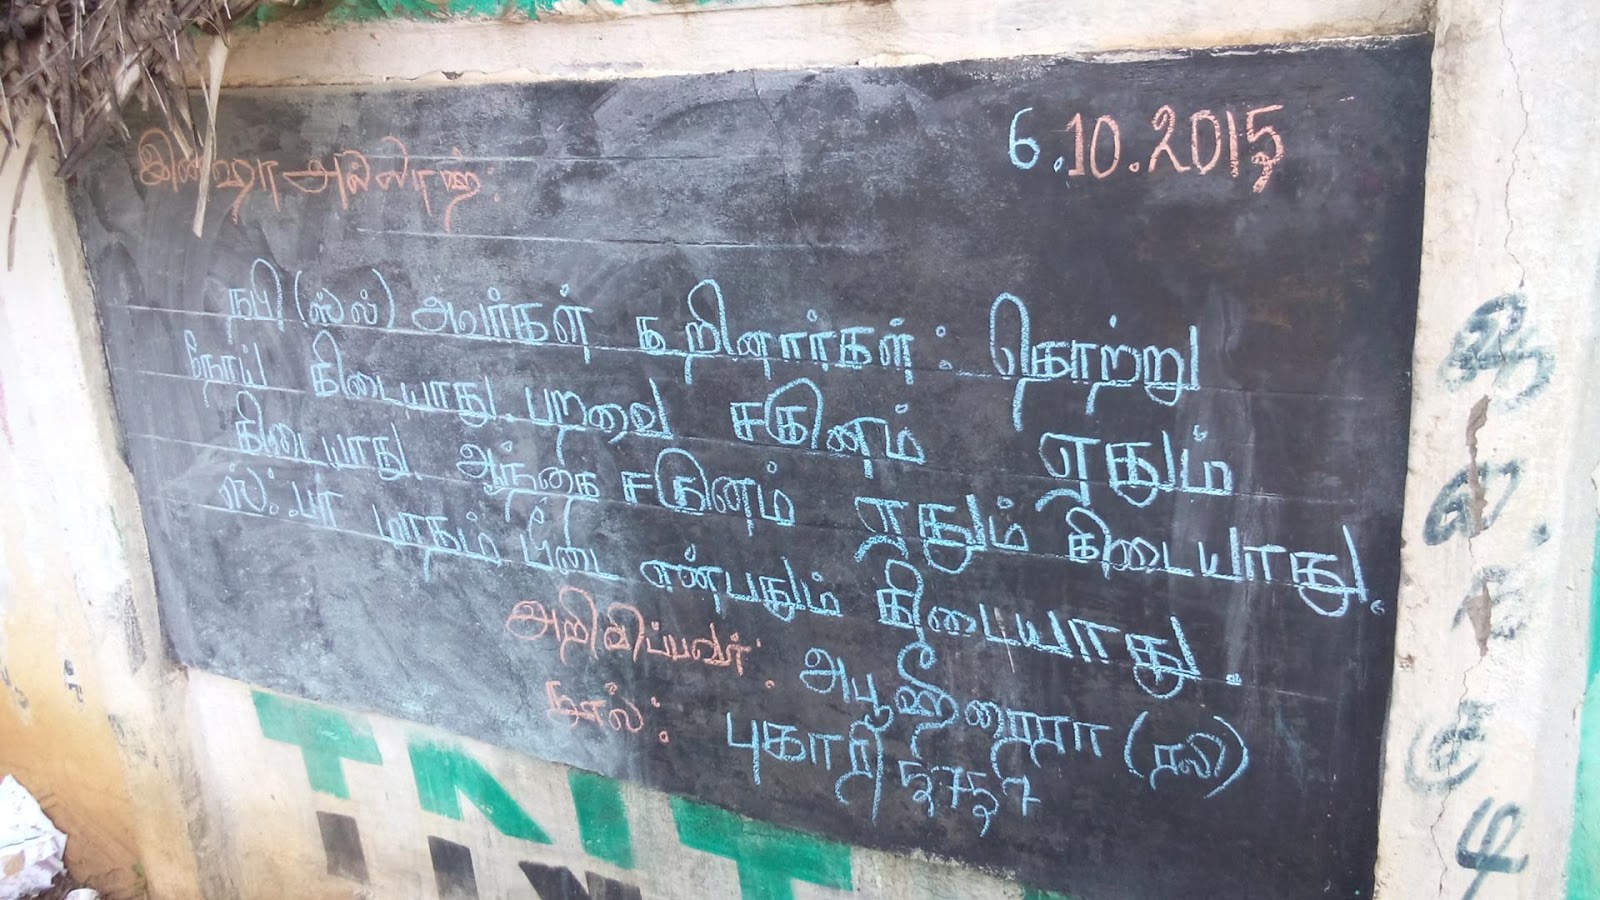 6.10.2015
இன்ஷா அல்லாஹ்:
நபி (ஸ்ல்) அவர்கள் கூறினார்கள்: தொற்று
நோய் கிடையாது. பறவை சகினம் ஏதும்
கிடையாது. ஆந்தை சகினம் ஏதும் கிடையாது.
ஸ்ஃபர் மாதம் பீடை என்பதும் கிடையாது.
அறிவிப்பவர்: அபூஹீரைரா (ரலி)
நூல்: புகாரி 5757